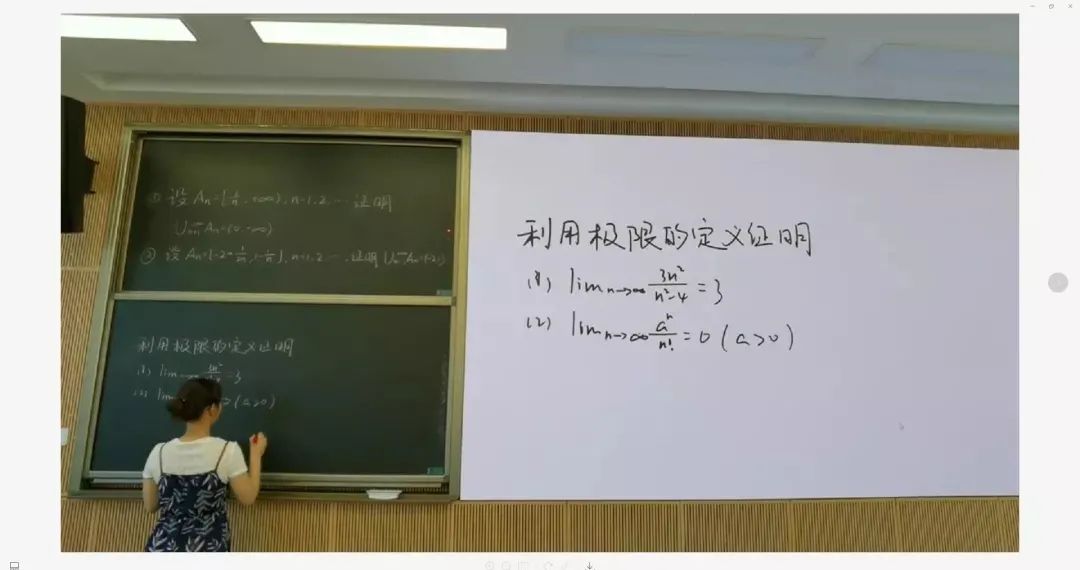 ① 设 An=[1/n, +∞), n=1,2,… 证明
∪n=1^∞ An=(0,+∞)
② 设 An=[-2+1/2n, 1-1/n], n=1,2,… 证明 ∪n=1^∞ An=(-2,1)
利用极限的定义证明
(1) lim 3n² =3
(2) lim (a>0)
利用极限的定义证明
(1) lim n→∞ 3n²/n²-4 = 3
(2) lim n→∞ aⁿ/n! = 0 (a>0)